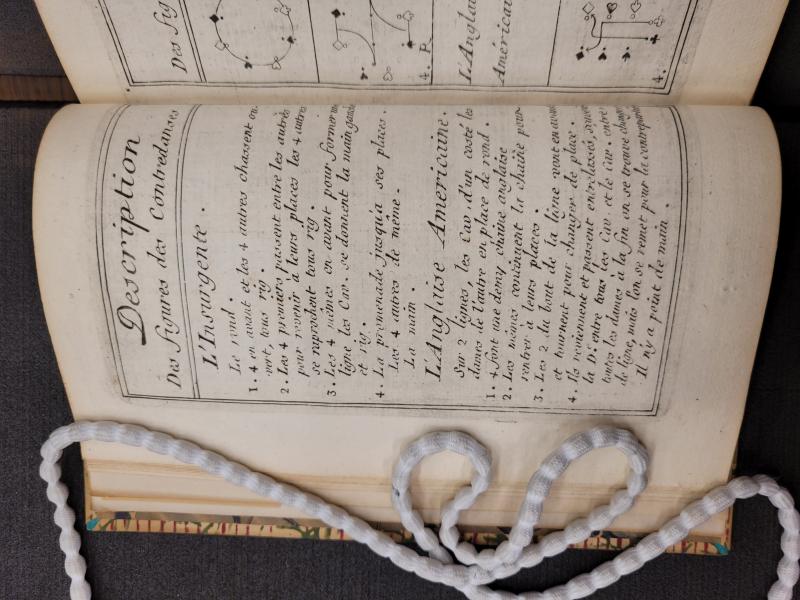 Description
Des figures des Contredanses
L'Insurgente.
Le rond.
1. 4 en avant et les 4 autres chassent ou-
vert, tous rig.
2. Les 4 premiers passent entre les autres
pour revenir à leurs places les 4 autres
se raprochent tous rig.
3. Les 4 mêmes en avant pour former une
ligne les Cav. se donnent la main gauche
et rig.
4. La promenade jusqu'a ses places.
Les 4 autres de même.
La main.
L'Anglaise Americaine.
Sur 2 lignes, les Cav. d'un costé les
dames de l'autre en place de rond.
1. 4 font une demy chaîne anglaise
2. Les mêmes continuent la chaîne pour
rentrer à leurs places.
3. Les 2 du bout de la ligne vont en avant
et tournent pour changer de place.
4. Ils reviennent et passent entrelassés, savoir
la De entre tous les Cav. et le Cav. entre
toutes les dames à la fin on se trouve changé
de ligne, mais l'on se remet pour la contrepartie
Il n'y a point de main.
Des Fig
4. P.
L'Anglai
Américai
4.